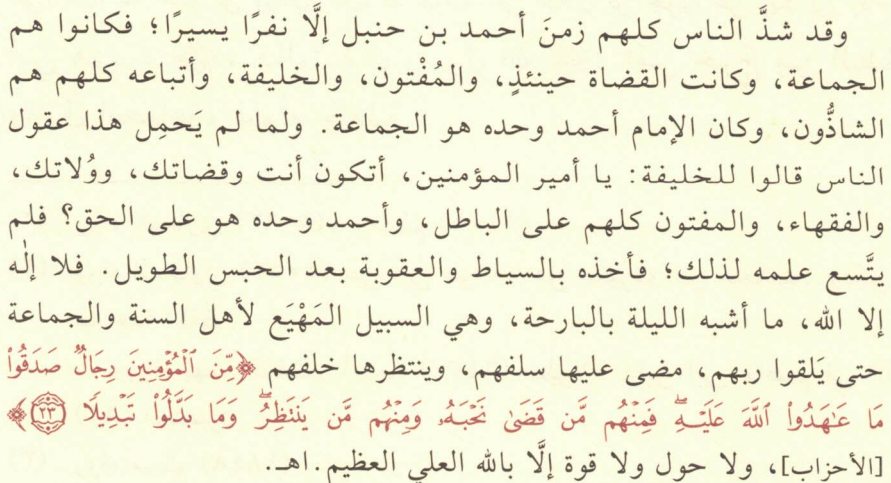 وقد شذَّ الناس كلهم زمنَ أحمد بن حنبل إلَّا نفرًا يسيرًا؛ فكانوا هم
الجماعة، وكانت القضاة حينئذٍ، والمُفْتون، والخليفة، وأتباعه كلهم هم
الشاذُّون، وكان الإمام أحمد وحده هو الجماعة. ولما لم يَحمِل هذا عقول
الناس قالوا للخليفة: يا أمير المؤمنين، أتكون أنت وقضاتك، ووُلاتك،
والفقهاء، والمفتون كلهم على الباطل، وأحمد وحده هو على الحق؟ فلم
يتَّسع علمه لذلك؛ فأخذه بالسياط والعقوبة بعد الحبس الطويل. فلا إلٰه
إلا الله، ما أشبه الليلة بالبارحة، وهي السبيل المَهْيَع لأهل السنة والجماعة
حتى يَلقوا ربهم، مضى عليها سلفهم، وينتظرها خلفهم ﴿مِّنَ ٱلْمُؤْمِنِينَ رِجَالٌ صَدَقُوا۟
مَا عَـٰهَدُوا۟ ٱللَّهَ عَلَيْهِ ۖ فَمِنْهُم مَّن قَضَىٰ نَحْبَهُۥ وَمِنْهُم مَّن يَنتَظِرُ ۖ وَمَا بَدَّلُوا۟ تَبْدِيلًا ٢٣﴾
[الأحزاب]، ولا حول ولا قوة إلَّا بالله العلي العظيم.اهـ.